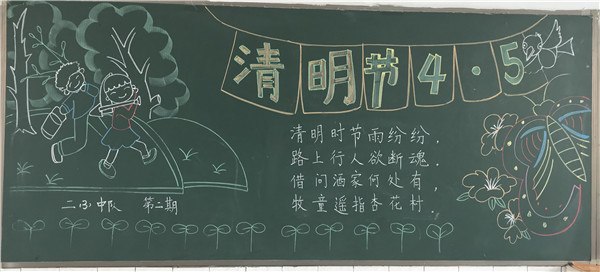 清明节4·5
清明时节雨纷纷，
路上行人欲断魂。
借问酒家何处有，
牧童遥指杏花村。
二（3）中队 第二期